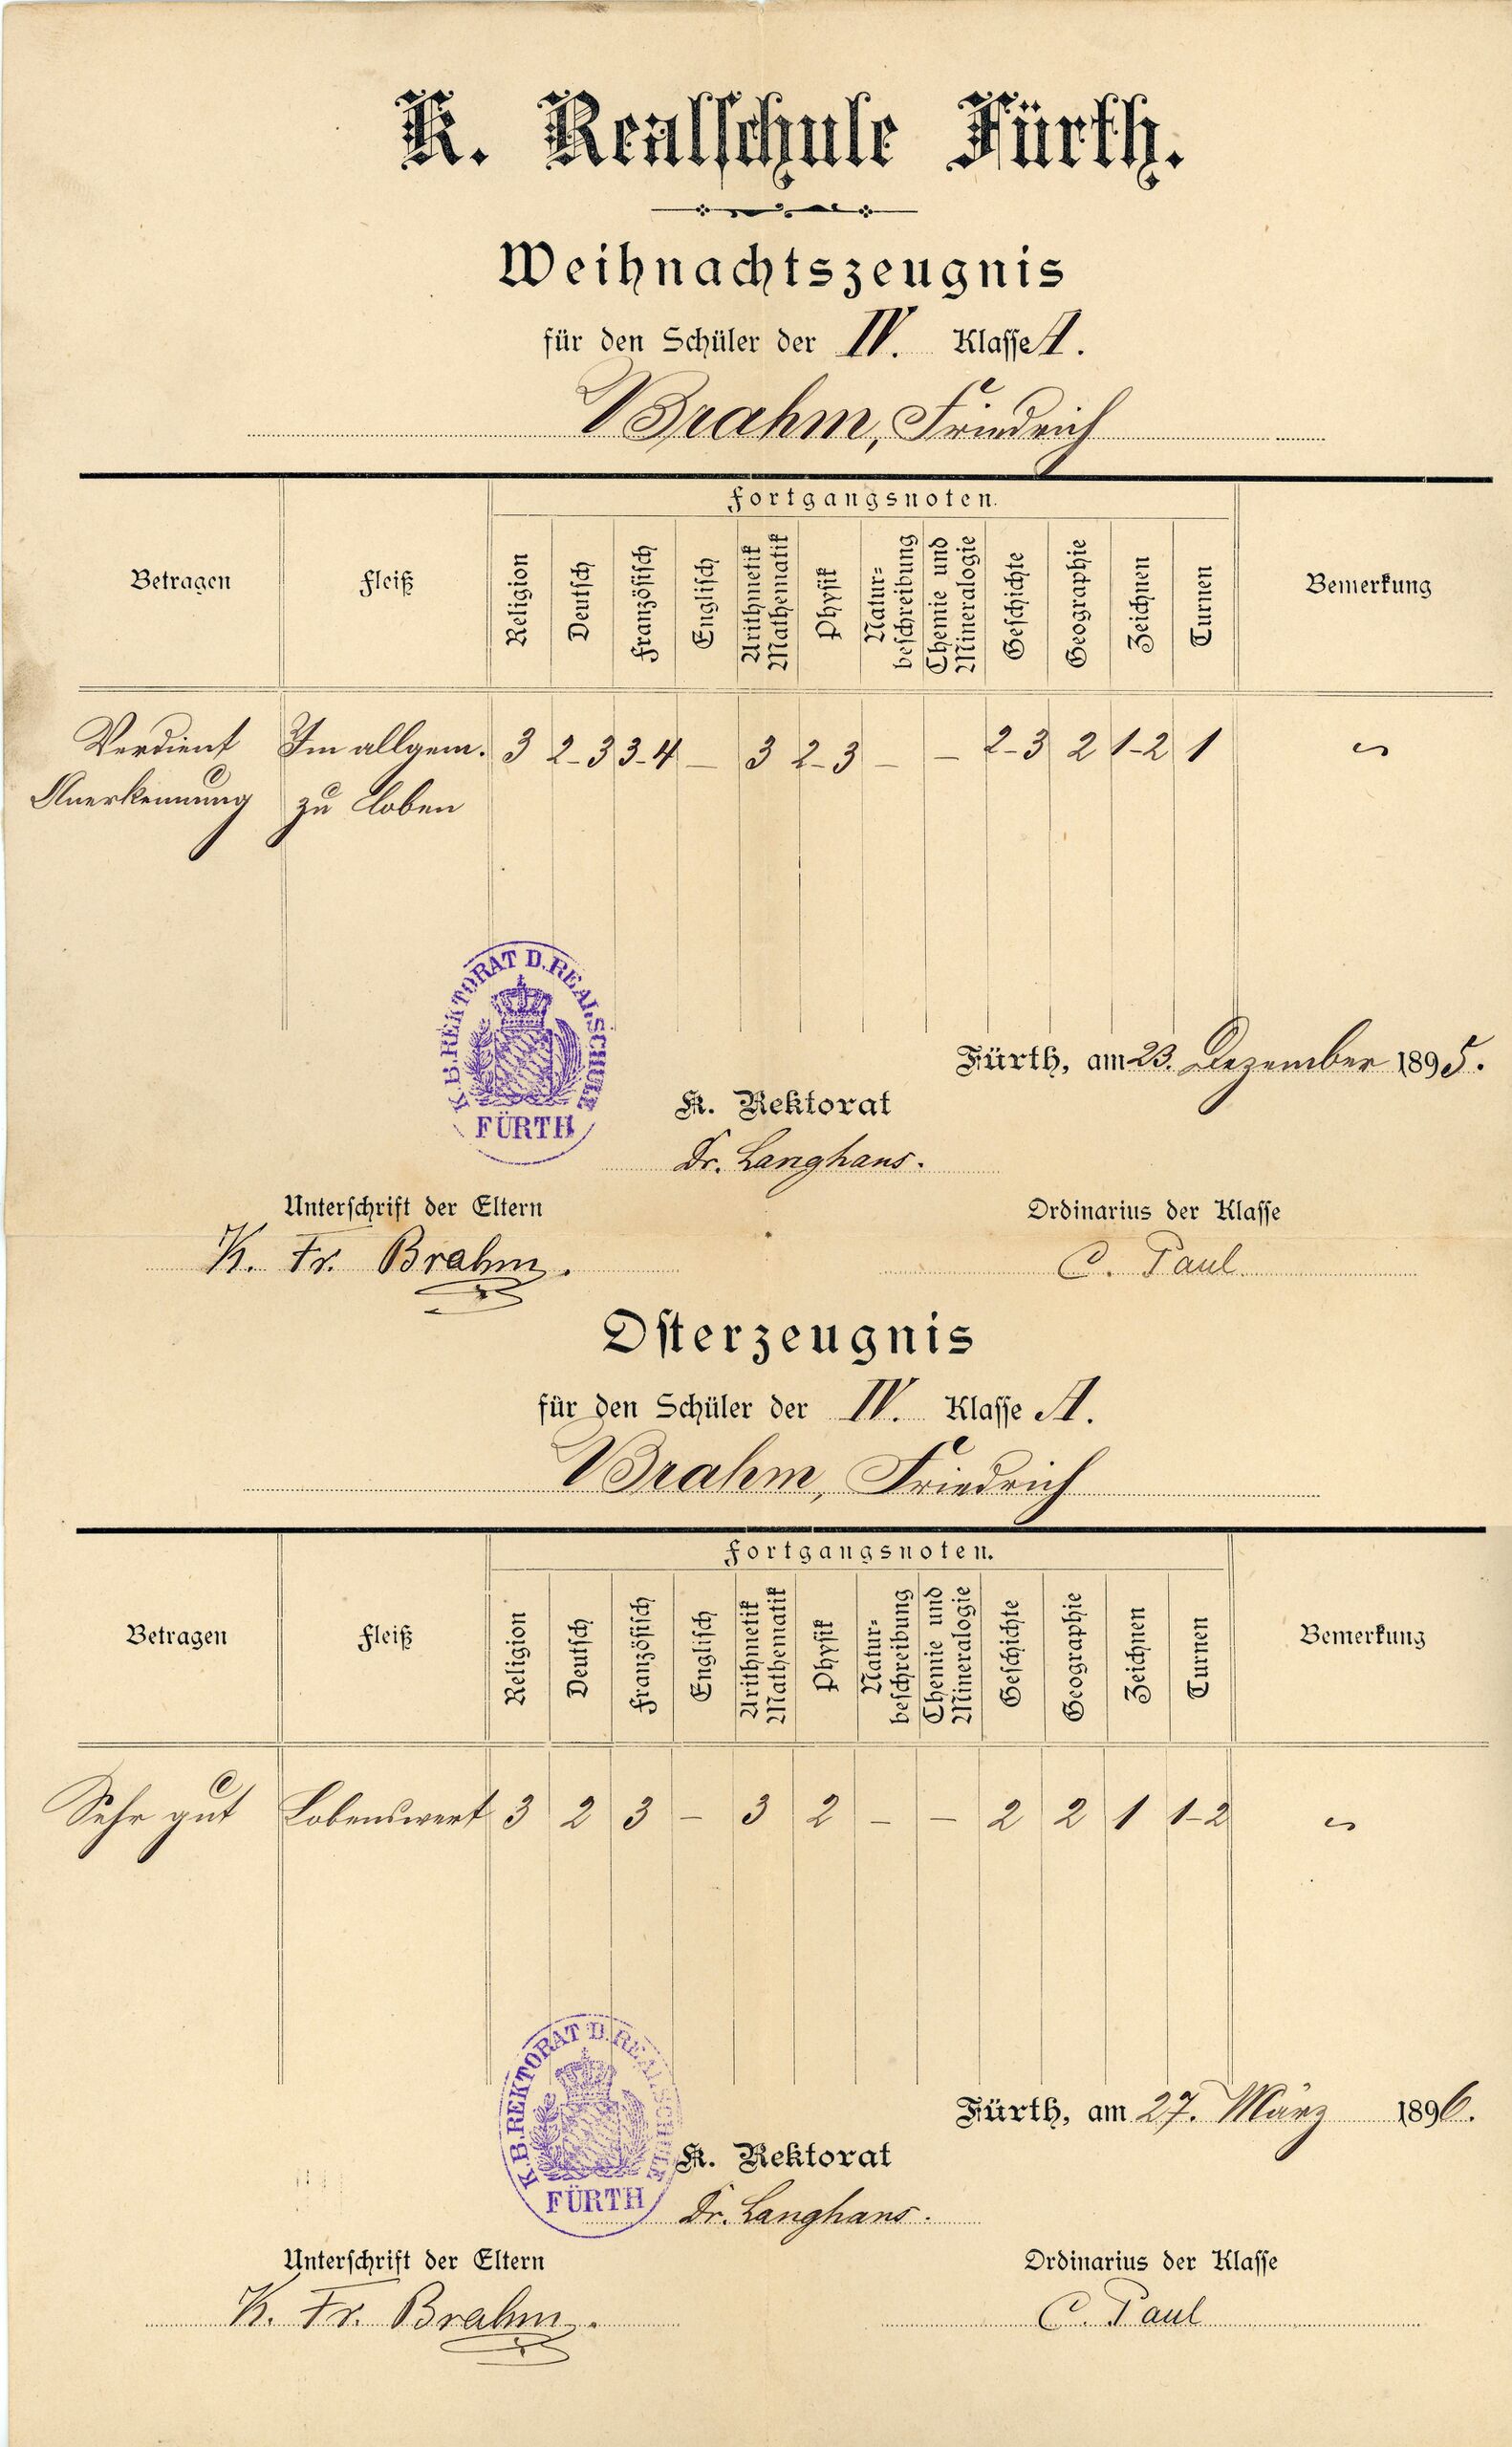 K. Realschule Fürth.
Weihnachtszeugnis
für den Schüler der IV. Klasse A.
Brahm, Friedrich
Fortgangsnoten.
Betragen Fleiß Religion Deutsch Französisch Englisch Arithmetik Mathematik Physik Natur-beschreibung Chemie und Mineralogie Geschichte Geographie Zeichnen Turnen Bemerkung
Verdient Im allgem. 3 2-3 3-4 – 3 2-3 – – 2-3 2 1-2 1
Anerkennung zu loben
K. B. REKTORAT D. REALSCHULE
FÜRTH
Fürth, am 23. Dezember 1895.
K. Rektorat
Dr. Langhans.
Unterschrift der Eltern Ordinarius der Klasse
K. Fr. Brahm. C. Paul
Osterzeugnis
für den Schüler der IV. Klasse A.
Brahm, Friedrich
Fortgangsnoten.
Betragen Fleiß Religion Deutsch Französisch Englisch Arithmetik Mathematik Physik Natur-beschreibung Chemie und Mineralogie Geschichte Geographie Zeichnen Turnen Bemerkung
Sehr gut Lobenswert 3 2 3 – 3 2 – – 2 2 1 1-2
K. B. REKTORAT D. REALSCHULE
FÜRTH
Fürth, am 27. März 1896.
K. Rektorat
Dr. Langhans.
Unterschrift der Eltern Ordinarius der Klasse
K. Fr. Brahm. C. Paul